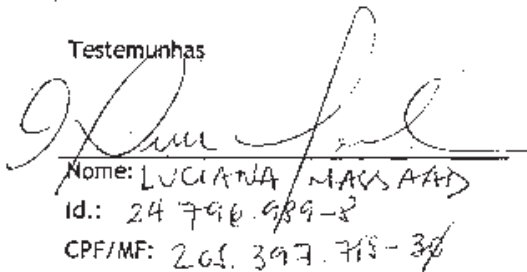 Testemunhas
Nome: LUCIANA MASSAAD
Id.: 24 796.989-8
CPF/MF: